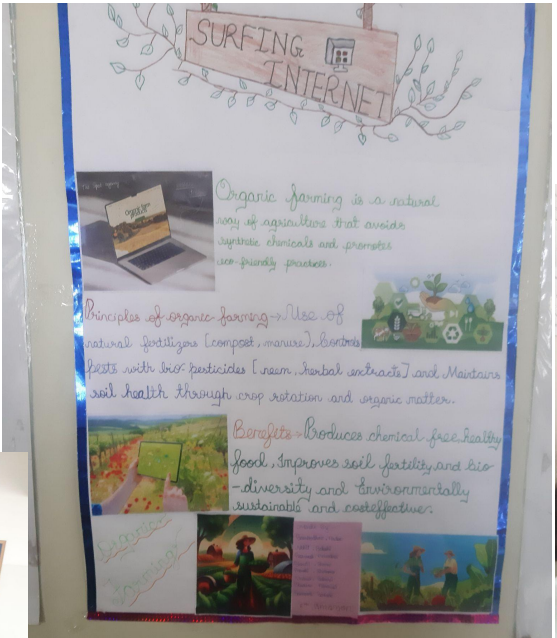 SURFING
INTERNET
Organic farming is a natural
way of agriculture that avoids
synthetic chemicals and promotes
eco-friendly practices.
Principles of organic farming → Use of
natural fertilizers [compost, manure], Controls
pests with bio-pesticides [neem, herbal extracts] and Maintains
soil health through crop rotation and organic matter.
Benefits → Produces chemical free healthy
food, Improves soil fertility and bio
-diversity and Environmentally
sustainable and costeffective.
Organic
farming